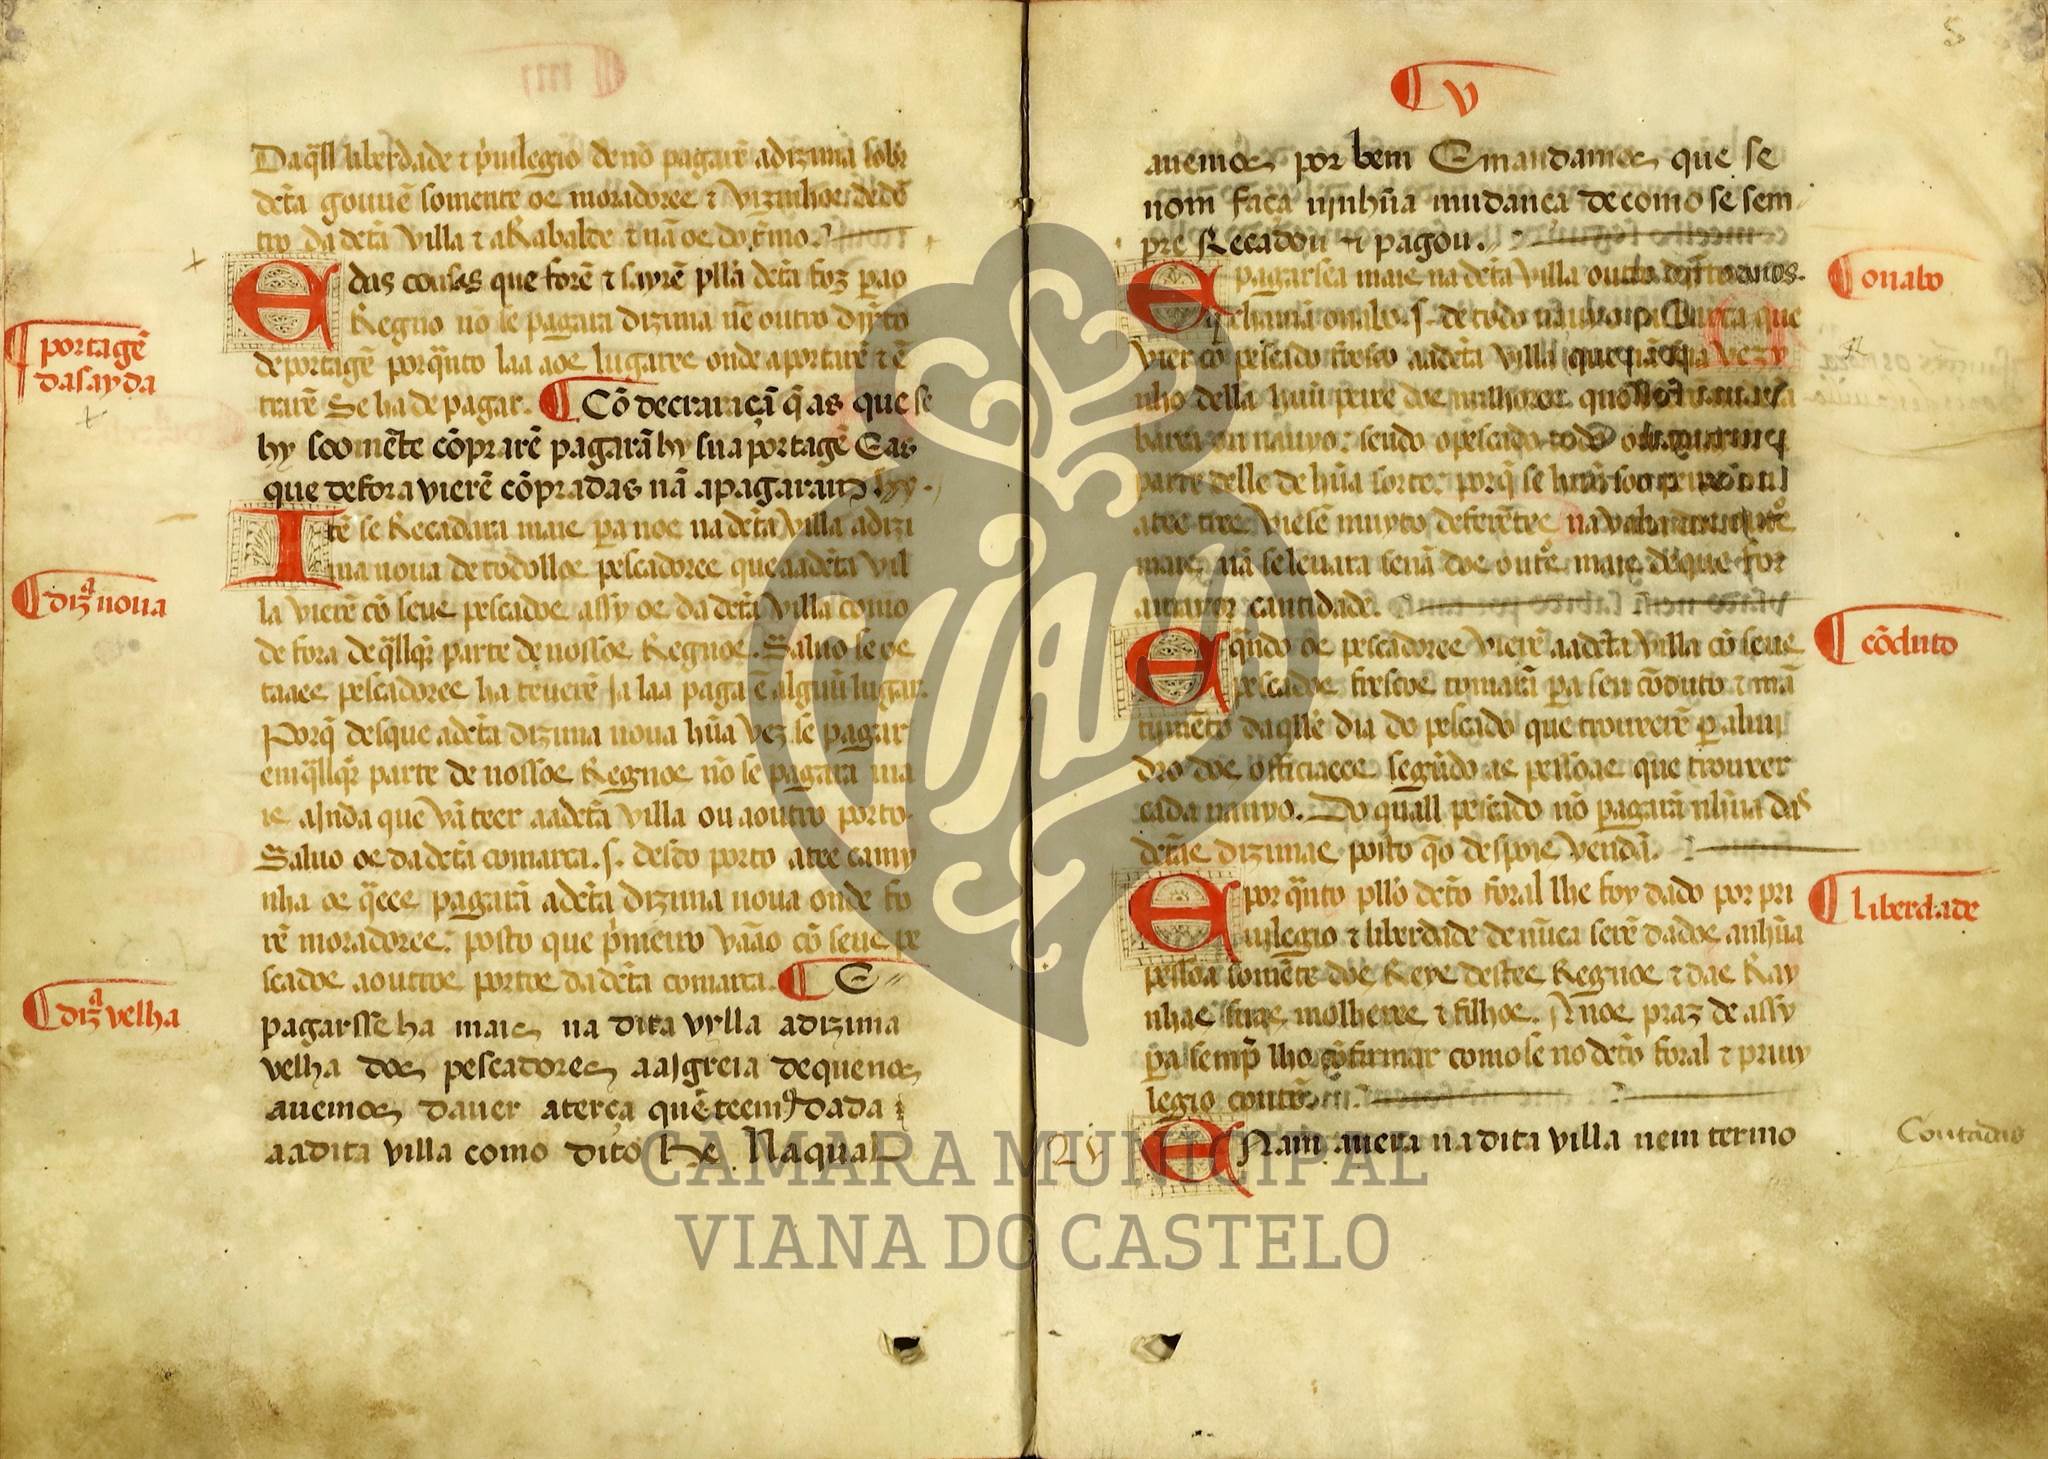 Daq̃ll liberdade ⁊ p̉uilegio de nõ pagarẽ a dizima sob̾
dẽta gouuẽ somente os moradores ⁊ vizinhos de dẽ
tro da dẽta villa ⁊ aRabalde ⁊ nã os do t̃mo.
E das cousas que forẽ ⁊ sayrẽ pella dẽta foz pa o
Regno nõ se pagara dizima nẽ outro dir̃to
de portagẽ porq̃nto laa aos lugares onde aportarẽ ⁊ ẽ
trarẽ Se ha de pagar. ¶ Cõ decraraçã q̃ as que se
hy soomẽte cõprarẽ pagarã hy sua portagẽ E as
que de fora vierẽ cõpradas nã a pagaram hy.
portagẽ
da sayda
Itẽ se Recadara mais pa nos na dẽta villa a dizi
ma noua de todollos pescadores que aa dẽta vil
la vierẽ cõ seus pescados assy os da dẽta villa como
de fora de q̃llq̃r parte de nossos Regnos. Saluo se os
taaes pescadores ha teuerẽ ja laa paga ẽ alguũ lugar.
Porq̃ des que a dẽta dizima noua hũa vez se pagar
em q̃llq̃r parte de nossos Regnos nõ se pagara ma
is ajnda que vã teer aa dẽta villa ou a outro porto.
Saluo os da dẽta comarca .s. des do porto atee camy
nha os q̃ees pagarã a dẽta dizima noua onde fo
rẽ moradores: posto que p̉meiro vaão cõ seus pe
scados a outros portos da dẽta comarca. ¶ E
pagarsse ha mais na dita vylla a dizima
velha dos pescadores aa Jgreia de que nos
auemos dauer a terça que teem̃ dada
aa dita villa como dito he. Na qual
diz.ᵃ noua
diz.ᵃ velha
¶ V
5
auemos por bem E mandamos que se
nom faça ninhũa mudança de como se sem
pre Recadou ⁊ pagou.
E pagarsea mais na dẽta villa
que chamã onabo .s. de todo nauyo
vier cõ pescado fresco aa dẽta villa
nho della huũ peixe dos milhores que
barca ou nauyo: sendo o pescado todo
parte delle de hũa sorte: porq̃ se
atee tres viesẽ muyto deferẽtes na valia
mais nã se leuara senã dos outr̃s mais de que for
a mayor cantidade.
onabo
E q̃ndo os pescadores vierẽ aa dẽta villa cõ seus
pescados frescos tomarã pa seu cõduto ⁊ mã
timẽto daq̃lle dia do pescado que trouxerẽ
dro dos officiaees segũdo as pessoas que trouxer
cada nauyo. Do quall pescado nõ pagarã nhũa das
dẽtas dizimas posto q̃ o despois vendã.
cõduto
E por q̃nto pllo dẽto foral lhe foy dado por pri
uilegio ⁊ liberdade de nũca serẽ dados a nhũa
pessoa somẽte dos Reys destes Regnos ⁊ das Ray
nhas suas molheres ⁊ filhos. A nos praz de assy
pa semp̃ lho cõfirmar como se no dẽto foral ⁊ priuy
legio contẽ.
liberdade
E Nam auera na dita villa nem termo
Coutadas
CÂMARA MUNICIPAL
VIANA DO CASTELO